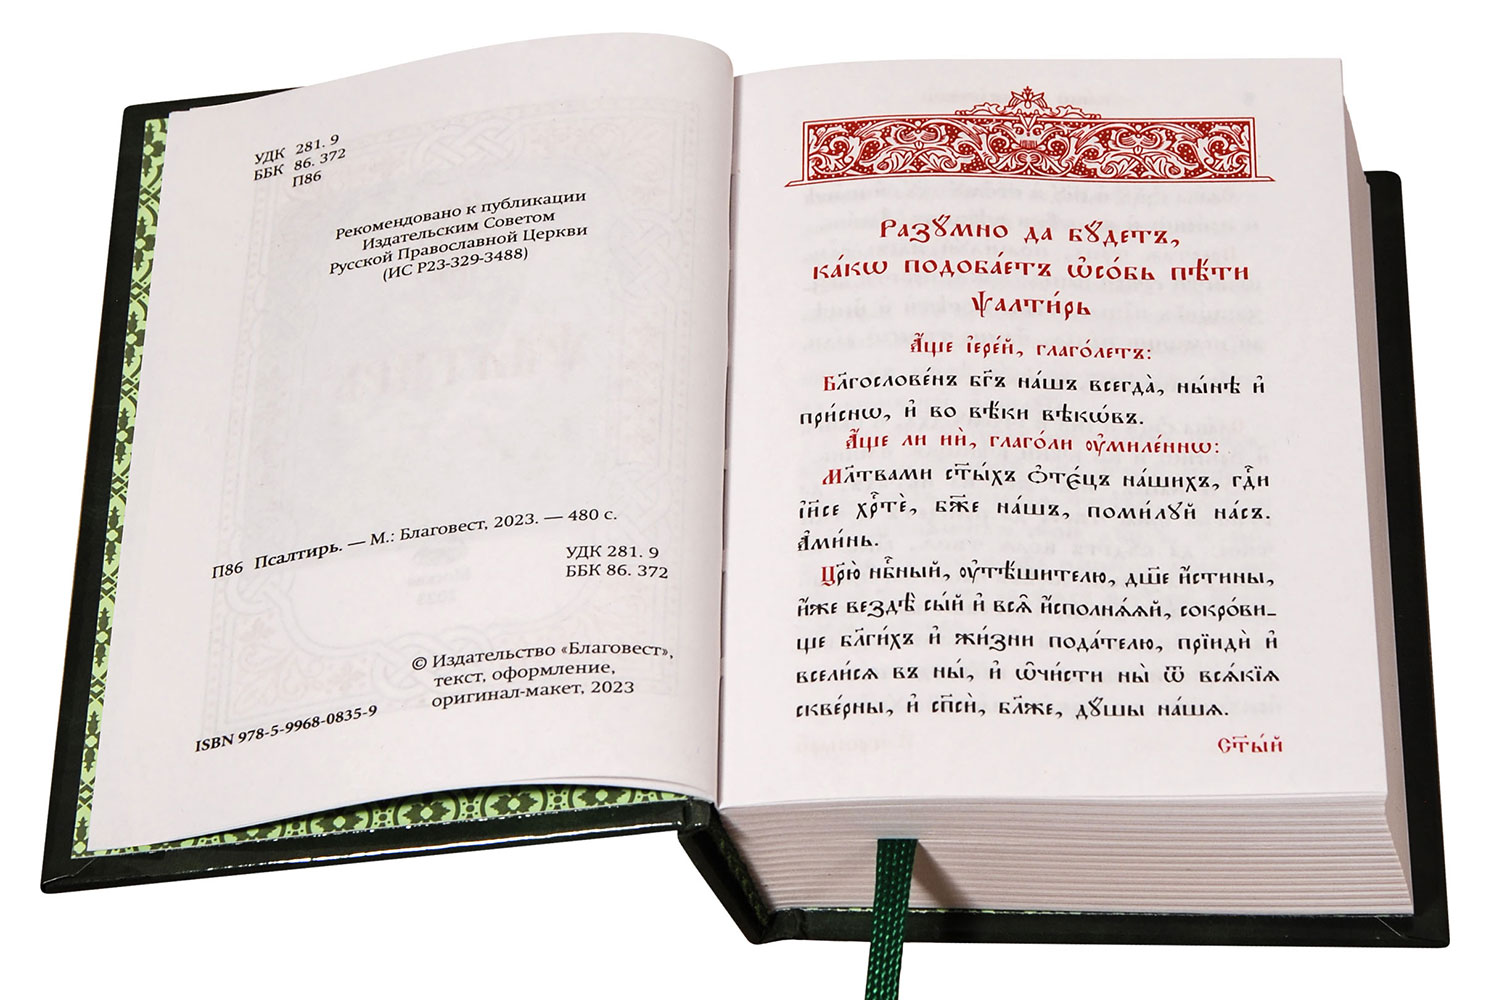 УДК 281. 9
ББК 86. 372
П86
Рекомендовано к публикации
Издательским Советом
Русской Православной Церкви
(ИС Р23-329-3488)
П86 Псалтирь. — М.: Благовест, 2023. — 480 с.
УДК 281. 9
ББК 86. 372
© Издательство «Благовест»,
текст, оформление,
оригинал-макет, 2023
ISBN 978-5-9968-0835-9
Разꙋмно да бꙋдетъ,
ка́кѡ подоба́етъ ѡ҆со́бь пѣ́ти
ѱалти́рь
А҆́ще і҆ере́й, глаго́летъ:
Бл҃гослове́нъ бг҃ъ на́шъ всегда̀, ны́нѣ и҆
при́снѡ, и҆ во вѣ́ки вѣкѡ́въ.
А҆́ще ли ни̑, глаго́ли ᲂу҆миле́ннѡ:
Мл҃твами ст҃ы́хъ ѻ҆тє́цъ на́шихъ, гдⷭ҇и
і҆и҃се хрⷭ҇тѐ, бж҃е на́шъ, поми́лꙋй на́съ.
А҆ми́нь.
Цр҃ю̀ нбⷭ҇ный, ᲂу҆тѣ́шителю, дш҃е и҆́стины,
и҆́же вездѣ̀ сы́й и҆ всѧ̑ и҆сполнѧ́ѧй, сокро́ви-
ще бл҃ги́хъ и҆ жи́зни пода́телю, прїидѝ и҆
всели́сѧ въ ны́, и҆ ѡ҆чи́сти ны̀ ѿ всѧ́кїѧ
скве́рны, и҆ сп҃сѝ, бл҃же, дꙋ́шы на́шѧ.
Ст҃ы́й